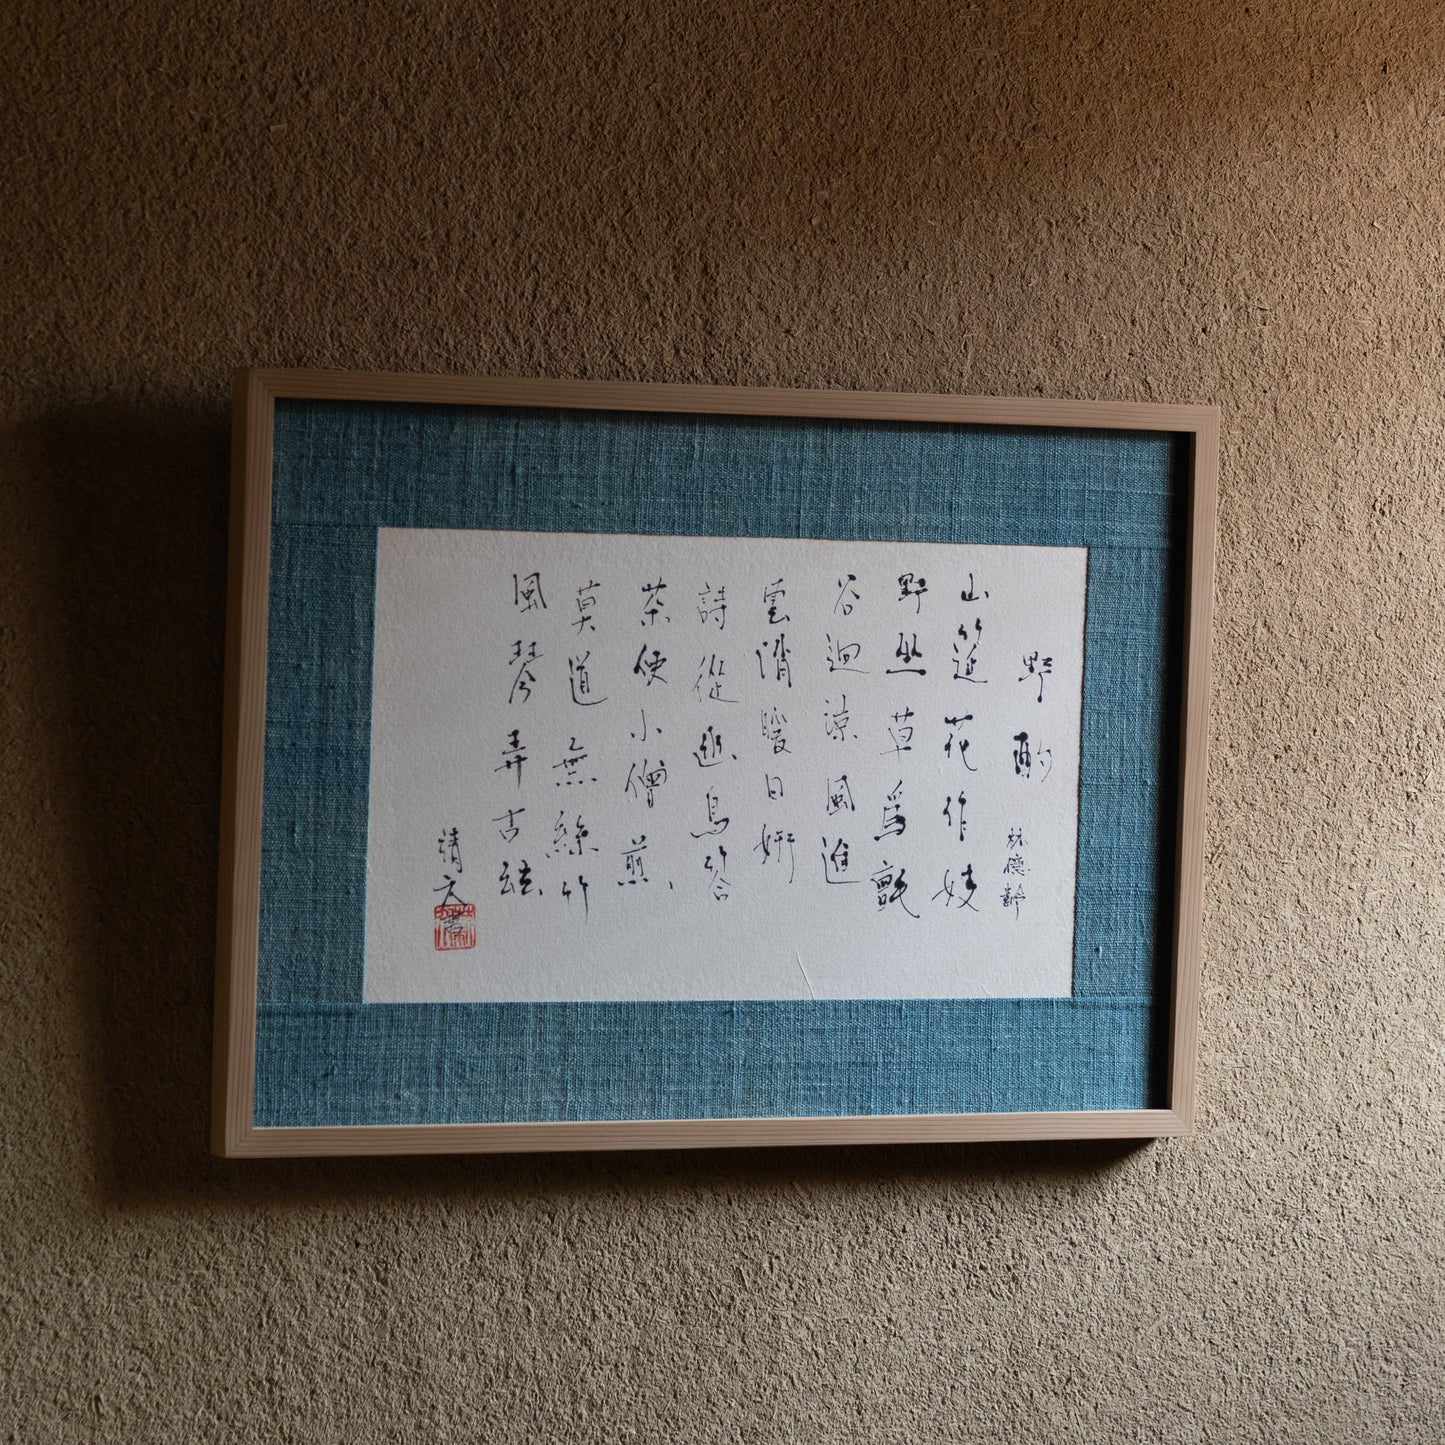 野酌
林德齡
山筵花作妓
野坐草爲氈
谷迴涼風進
雲消暖日妍
詩從幽鳥答
茶便小僧煎
莫道無絲竹
風琴弄古絃
清文書